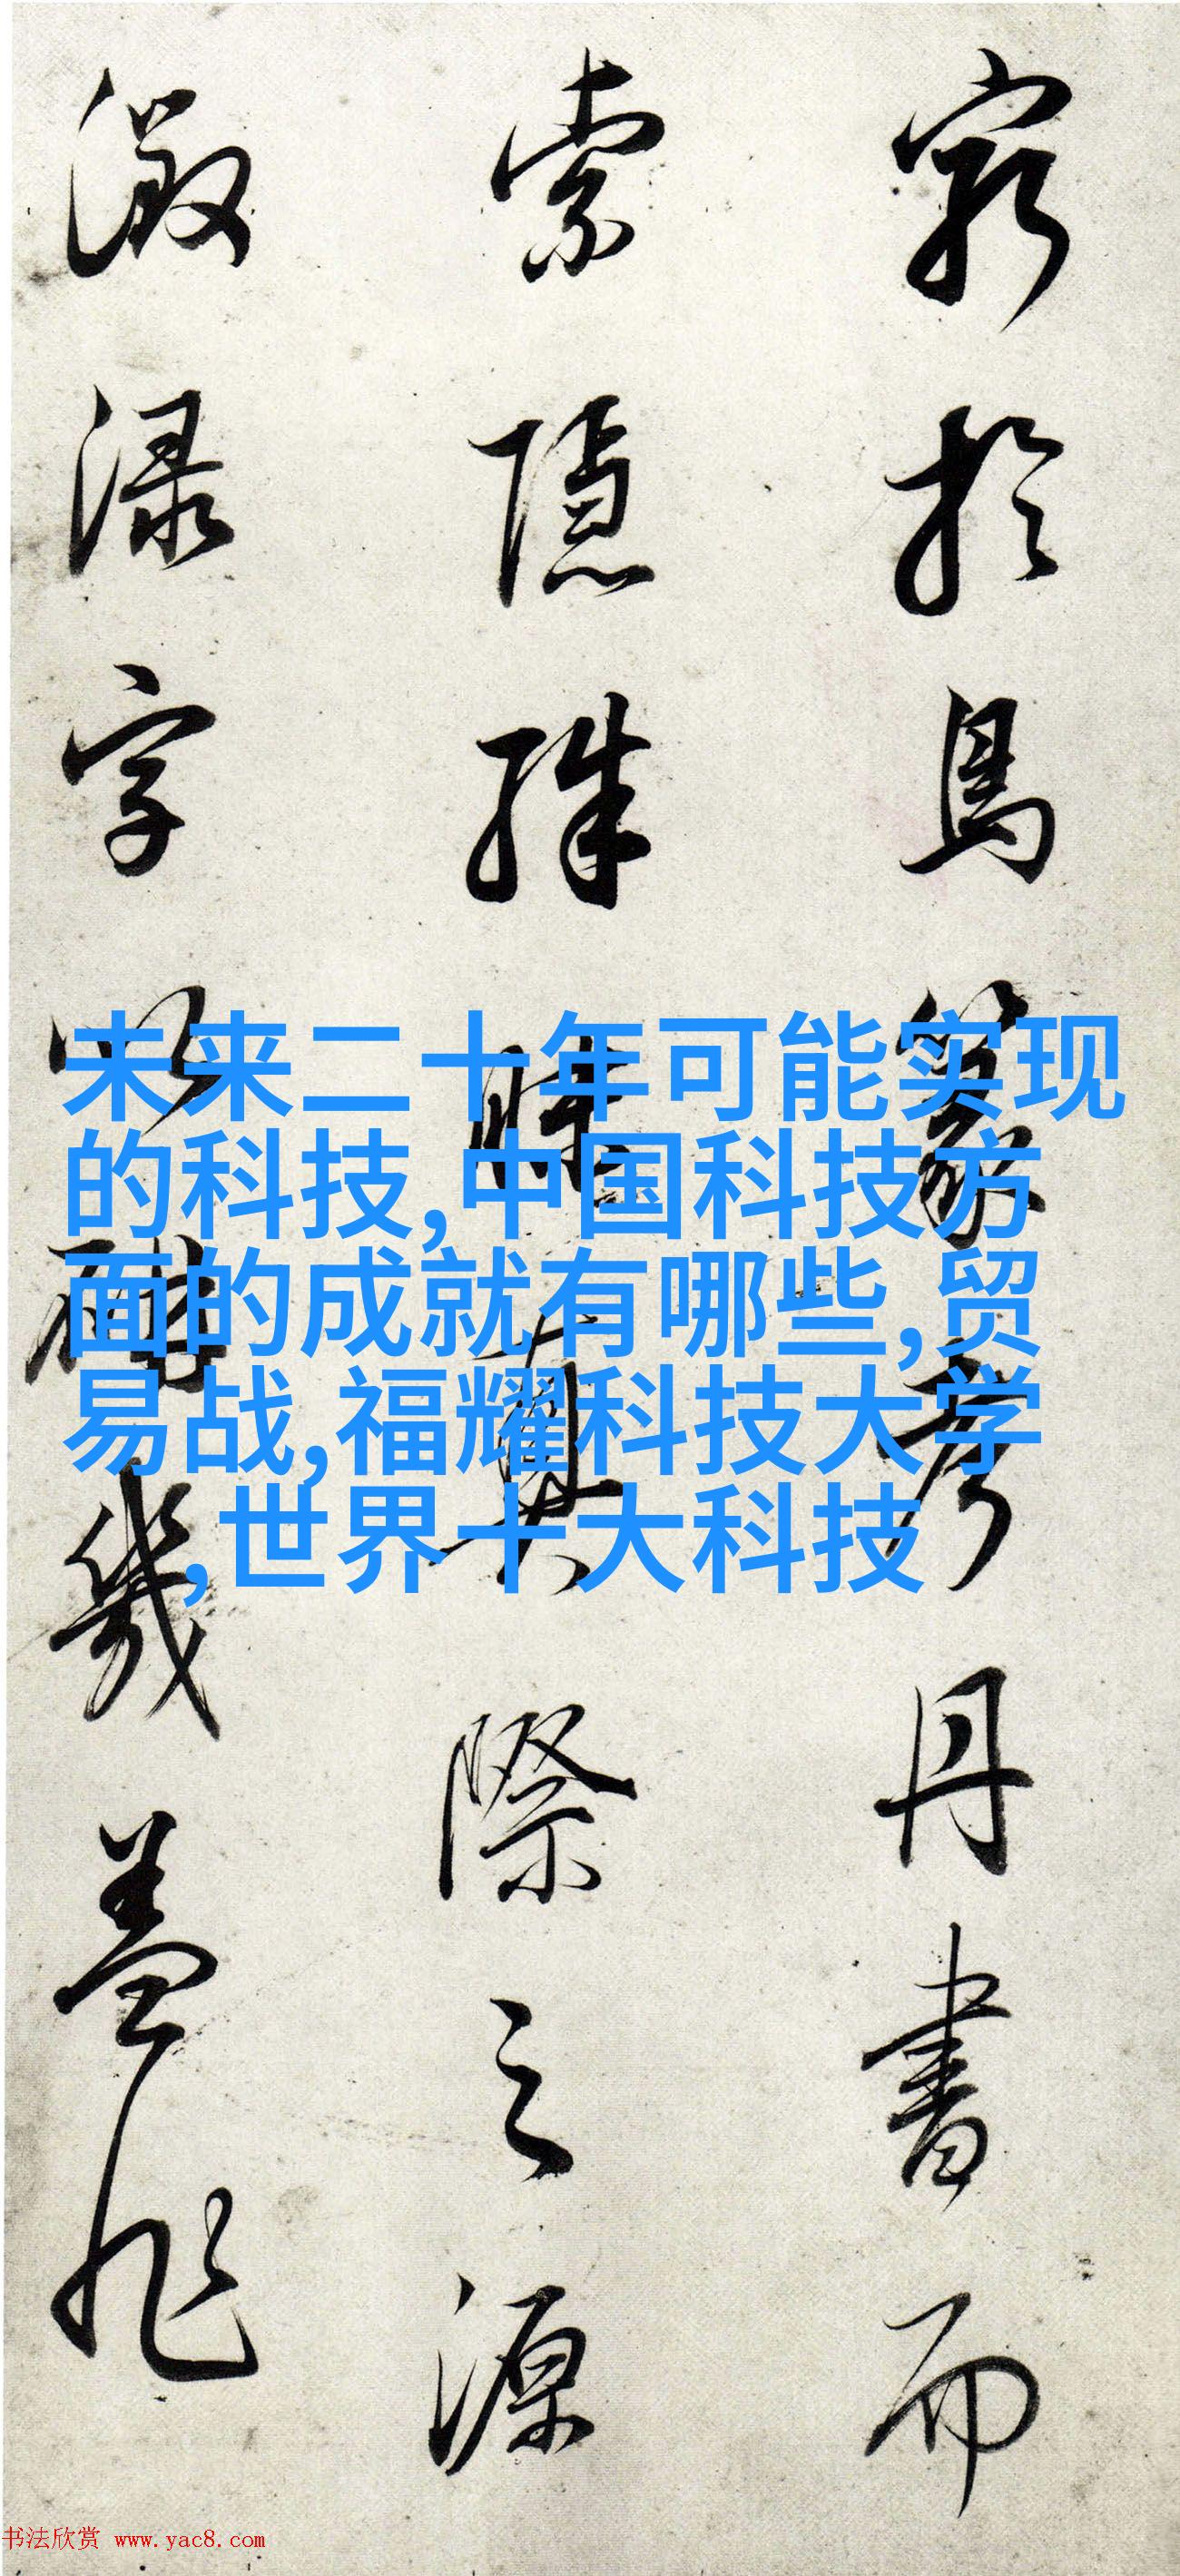 窮於鳥篆考丹書而
索隱殊昧真際之源
澂渌字以研幾蓋非
未来二十年可能实现
的科技,中国科技方
面的成就有哪些,贸
易战,福耀科技大学
,世界十大科技
书法欣赏 www.yac8.com